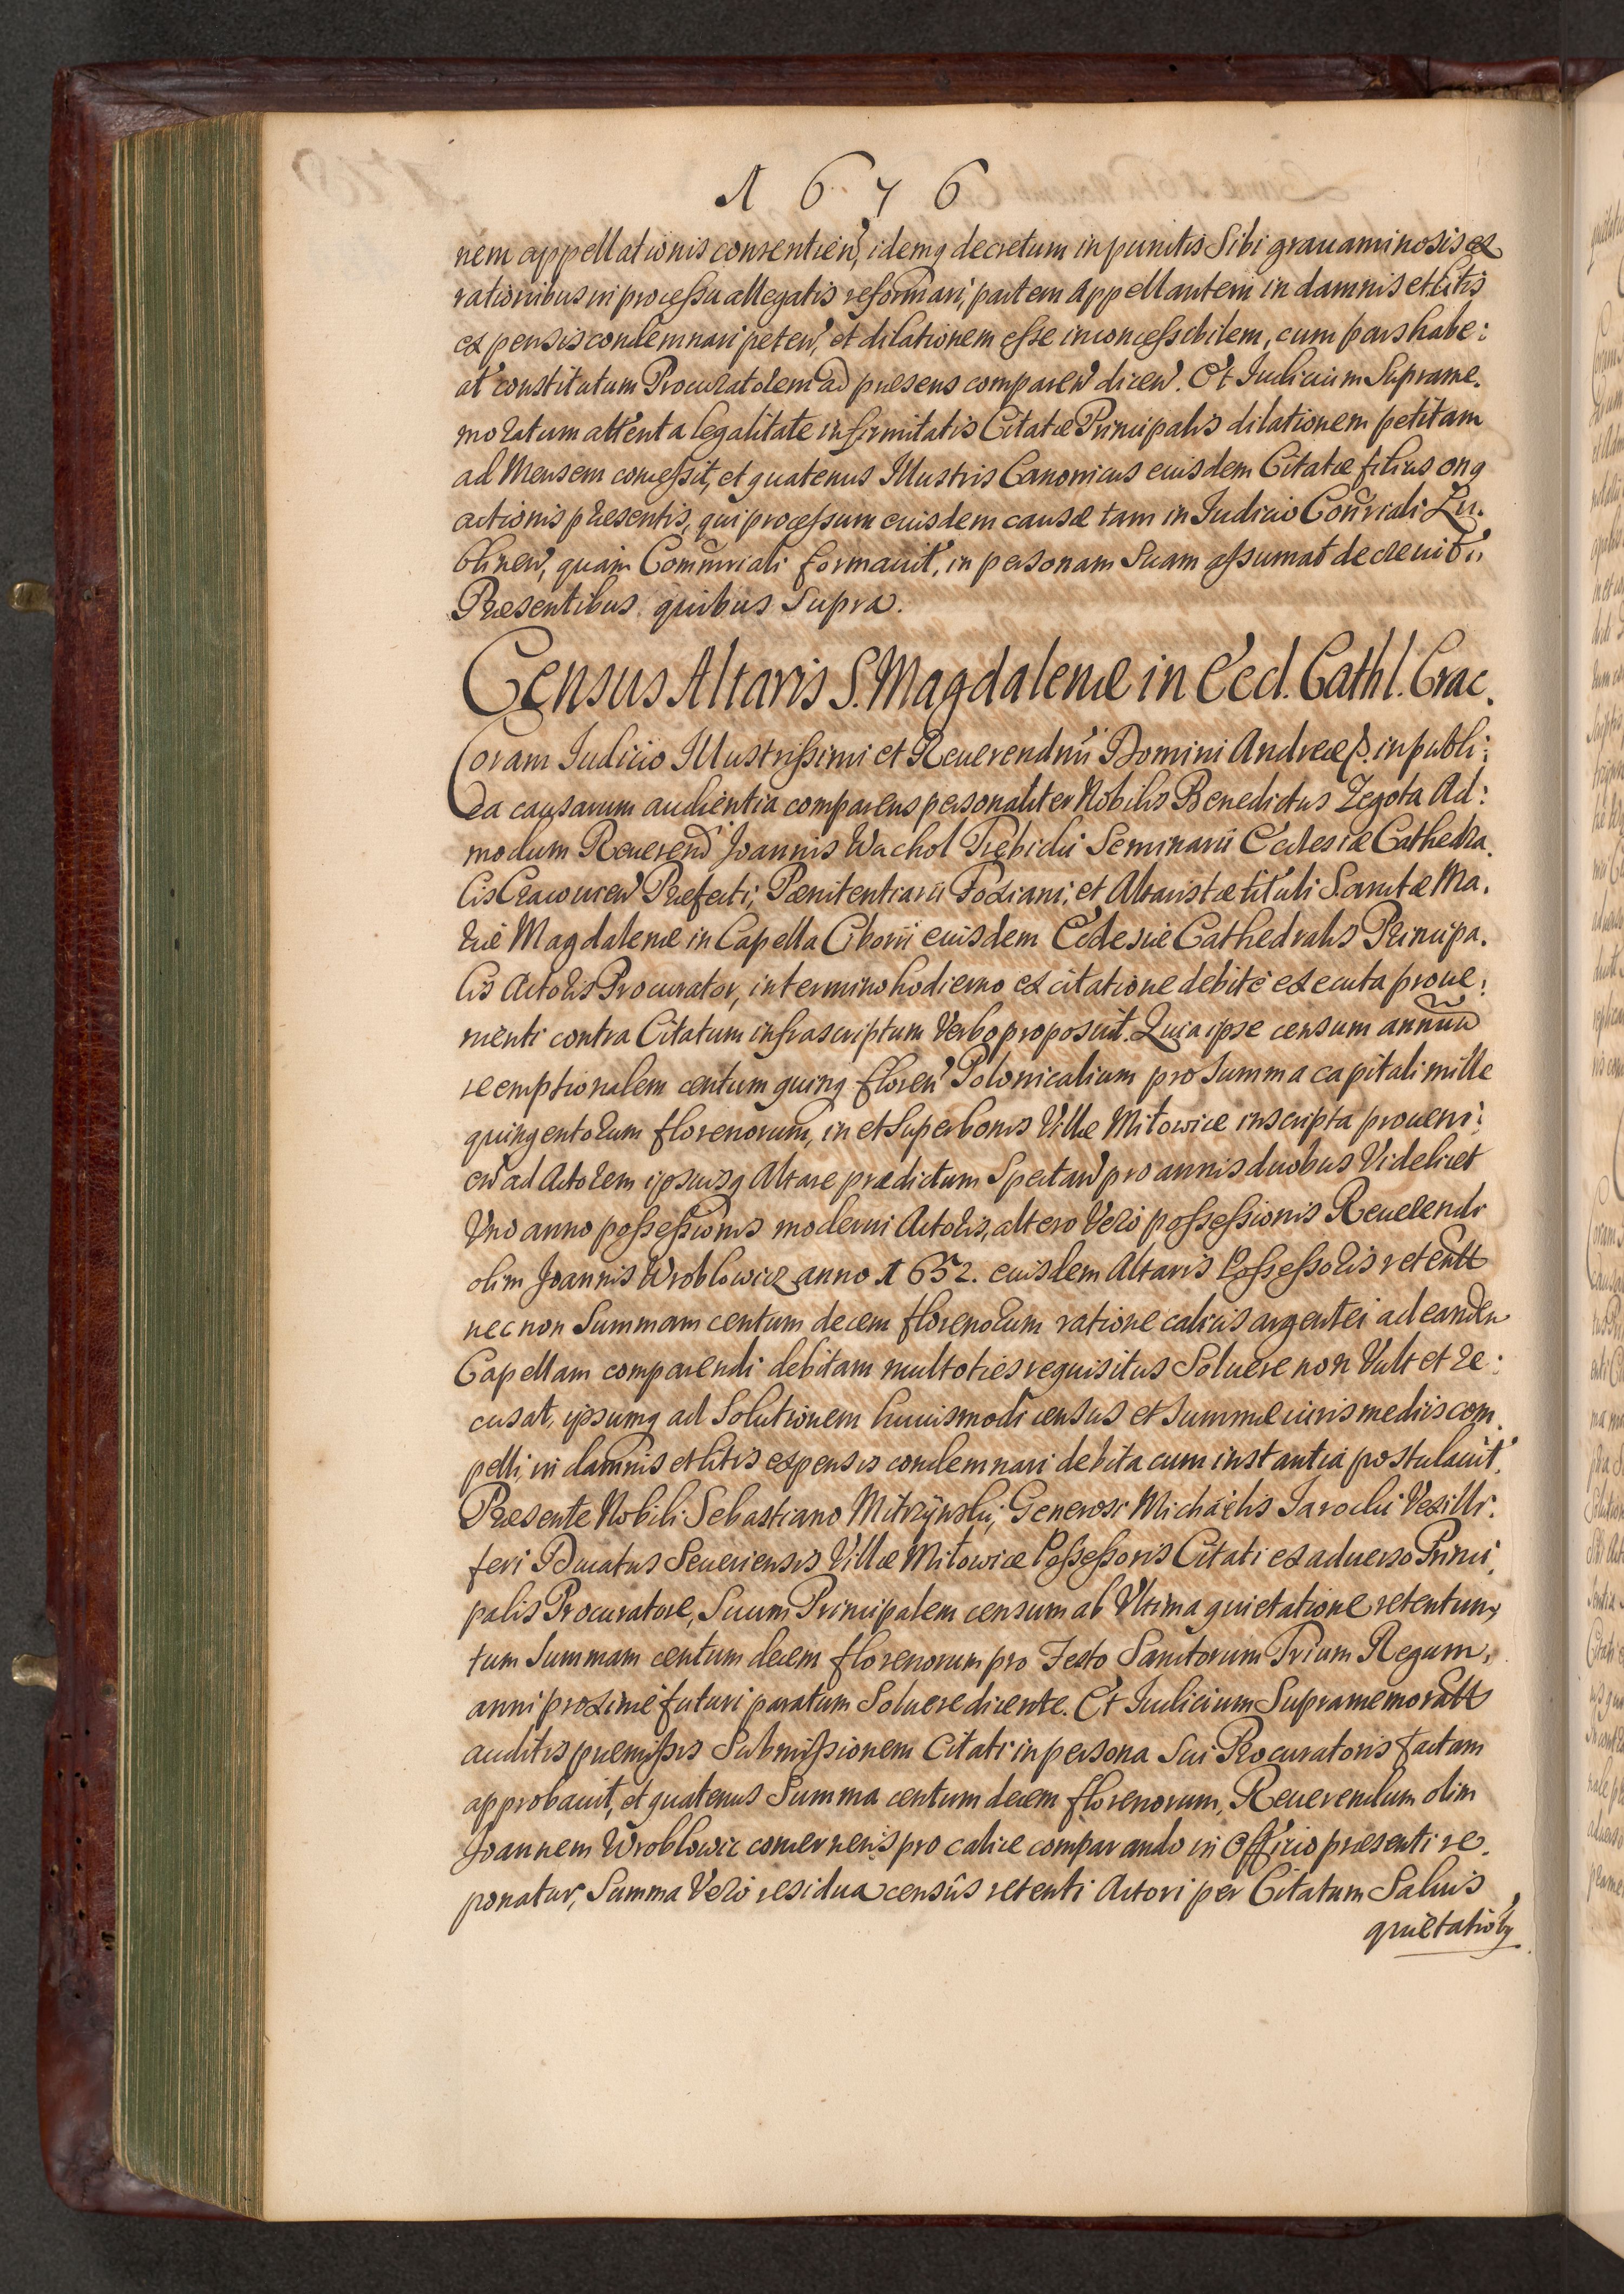 1676
nem appellationis consentien, idemq decretum in punctis Sibi grauaminosis ex
rationibus in processu allegatis reformari, partem Appellantem in damnis et litis
expensis condemnari peten, et dilationem esse inconcessibilem, cum pars habe:
at constitutum Procuratorem ad præsens comparen dicen. Et Iudicium Suprame.
moratum attenta legalitate infirmitatis Citatæ Principalis dilationem petitam
ad Mensem concessit, et quatenus Illustris Canonicus eiusdem Citatæ filius onq
actionis præsentis, qui processum eiusdem causæ tam in Iudicio Coñriali Lu.
blinen, quam Commriali formauit, in personam Suam assumat decreuit.
Præsentibus quibus Supra.
Census Altaris S. Magdalenæ in Eccl. Cathl. Crac.
Coram Iudicio Illustrissimi et Reuerendmi Domini Andreæ P. in publi:
ca causarum audientia comparens personaliter Nobilis Benedictus Zegota Ad:
modum Reuerend Joannis Wachol Trębicki Seminarii Ecclesiæ Cathedra.
lis Cracouien Præfecti, Pænitentiarii Foziani, et Altaristæ tituli Sanctæ Ma.
riæ Magdalenæ in Capella Ciborii eiusdem Ecclesiæ Cathedralis Principa.
lis Actoris Procurator, in termino hodierno ex citatione debitè executa proue:
nienti contra Citatum infrascriptum Verbo proposuit. Quia ipse censum annuũ
reemptionalem centum quinq floren Polonicalium pro Summa capitali mille
quingentorum florenorum, in et Super bonis Villæ Mitowice inscripta proueni:
en ad Actorem ipsiusq Altare prædictum Spectan pro annis duobus Videlicet
Vno anno possessionis moderni Actoris, altero Verò possessionis Reuerendi
olim Joannis Wroblowicz anno 1652. eiusdem Altaris Possessoris retentt
nec non Summam centum decem florenorum ratione calicis argentei ad eanden
Capellam comparendi debitam multoties requisitus Soluere non Vult et re:
cusat, ipsumq ad Solutionem huiusmodi census et Summæ iuris mediis com
pelli, in damnis et litis expensis condemnari debita cum instantia postulauit.
Præsente Nobili Sebastiano Mitrzÿnski, Generosi Michaëlis Jarocki Vexilli:
feri Ducatus Seueriensis Villæ Mitowice Possessoris Citati ex aduerso Princi.
palis Procuratore, Suum Principalem censum ab Vltima quietatione retentum,
tum Summam centum decem florenorum pro Festo Sanctorum Trium Regum,
anni proximè futuri paratum Soluere dicente. Et Iudicium Supramemoratt
auditis præmissis Submissionem Citati in persona Sui Procuratoris factam
approbauit, et quatenus Summa centum decem florenorum, Reuerendum olim
Joannem Wroblowic concernens pro calice comparando in Officio præsenti re.
ponatur, Summa Verò residua censûs retenti Actori per Citatum Saluis
quietatiõbq